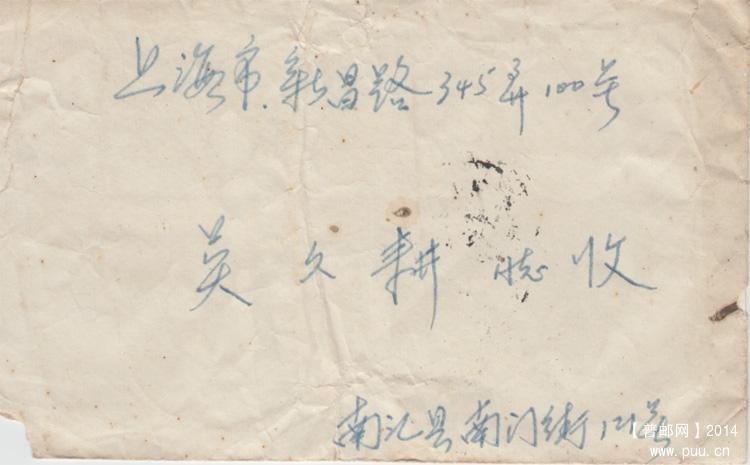 上海市新昌路345弄100号
吴文耕 同志 收
南汇县南门街121号
【普邮网】2014
www.puu.cn